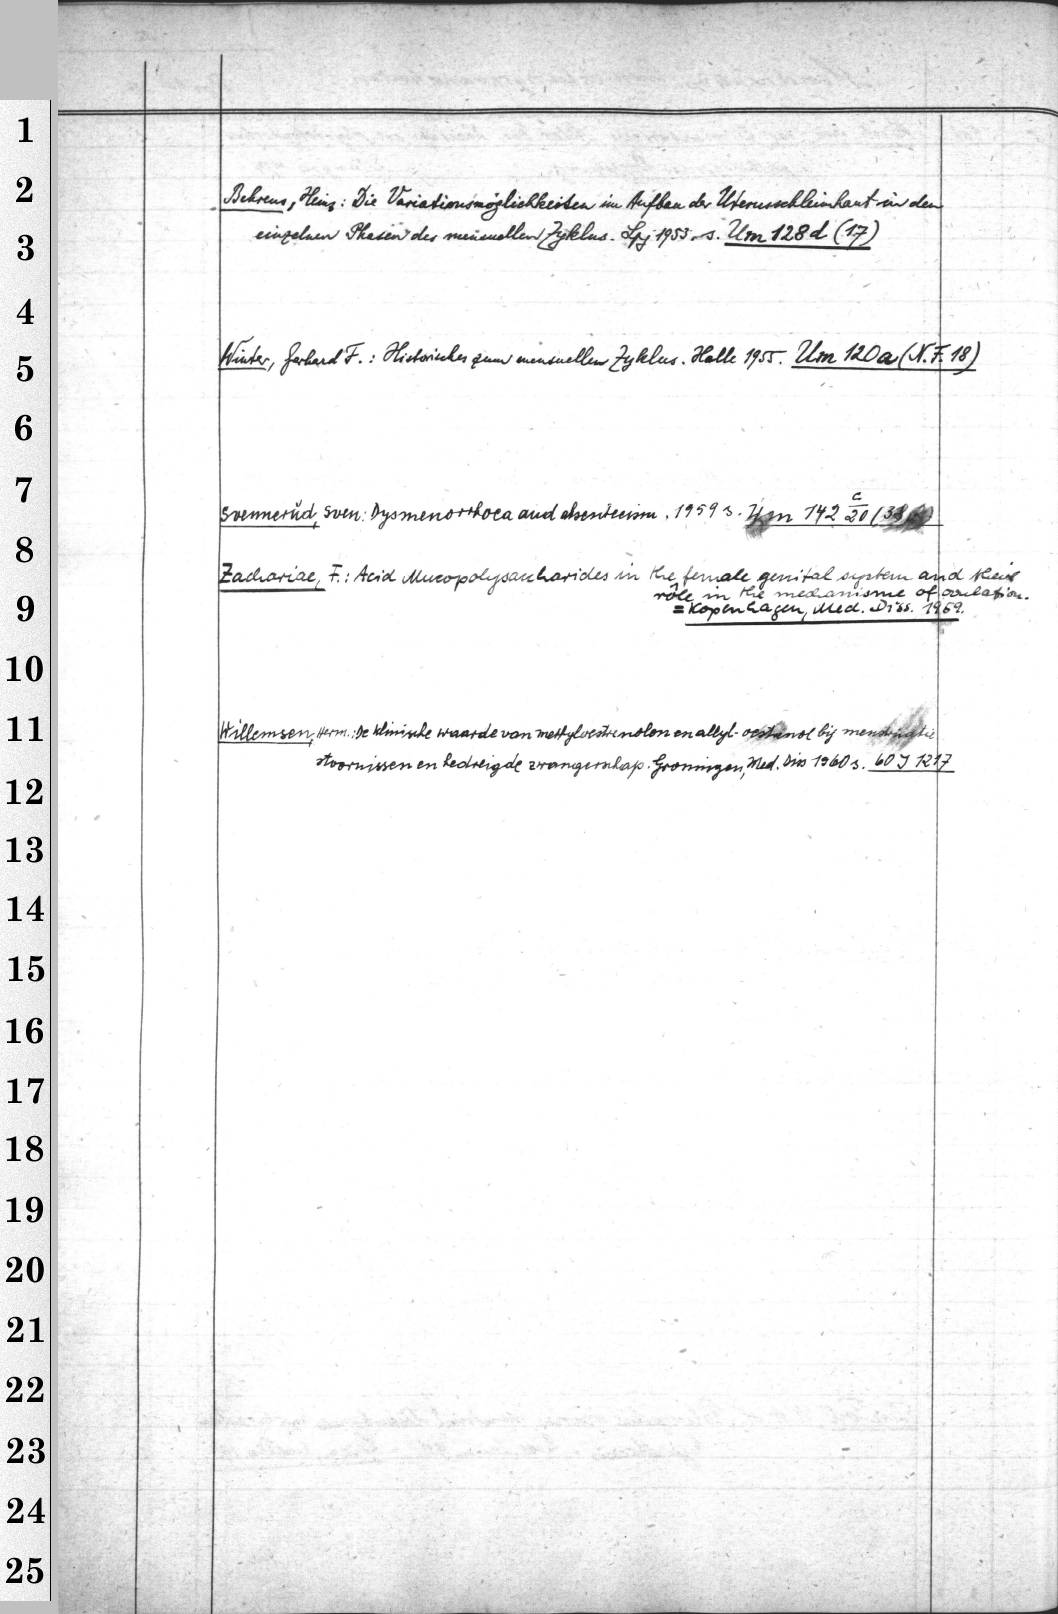 1
2
Behrens, Heinz: Die Variationsmöglichkeiten im Aufbau der Uterusschleimhaut in den
3
einzelnen Phasen des mensuellen Zyklus. Lpz 1955. s. Um 128d (17)
4
5
Winter, Gerhard F.: Historisches zum mensuellen Zyklus. Halle 1955. Um 120a (N.F. 18)
6
7
Svennerud, Sven: Dysmenorrhoea and absenteeism. 1959 s. Um 142 c/20 (38
8
Zachariae, F.: Acid Mucopolysaccharides in the female genital system and their
rôle in the mechanisme of ovulation.
9
= Kopenhagen, Med. Diss. 1959.
10
11
Willemsen, Herm.: De klinische waarde van methyloestrenolon en allyl-oestrenol bij menstruatie
stoornissen en bedreigde zwangerschap. Groningen, Med. Diss 1960 s. 60 J 1217
12
13
14
15
16
17
18
19
20
21
22
23
24
25